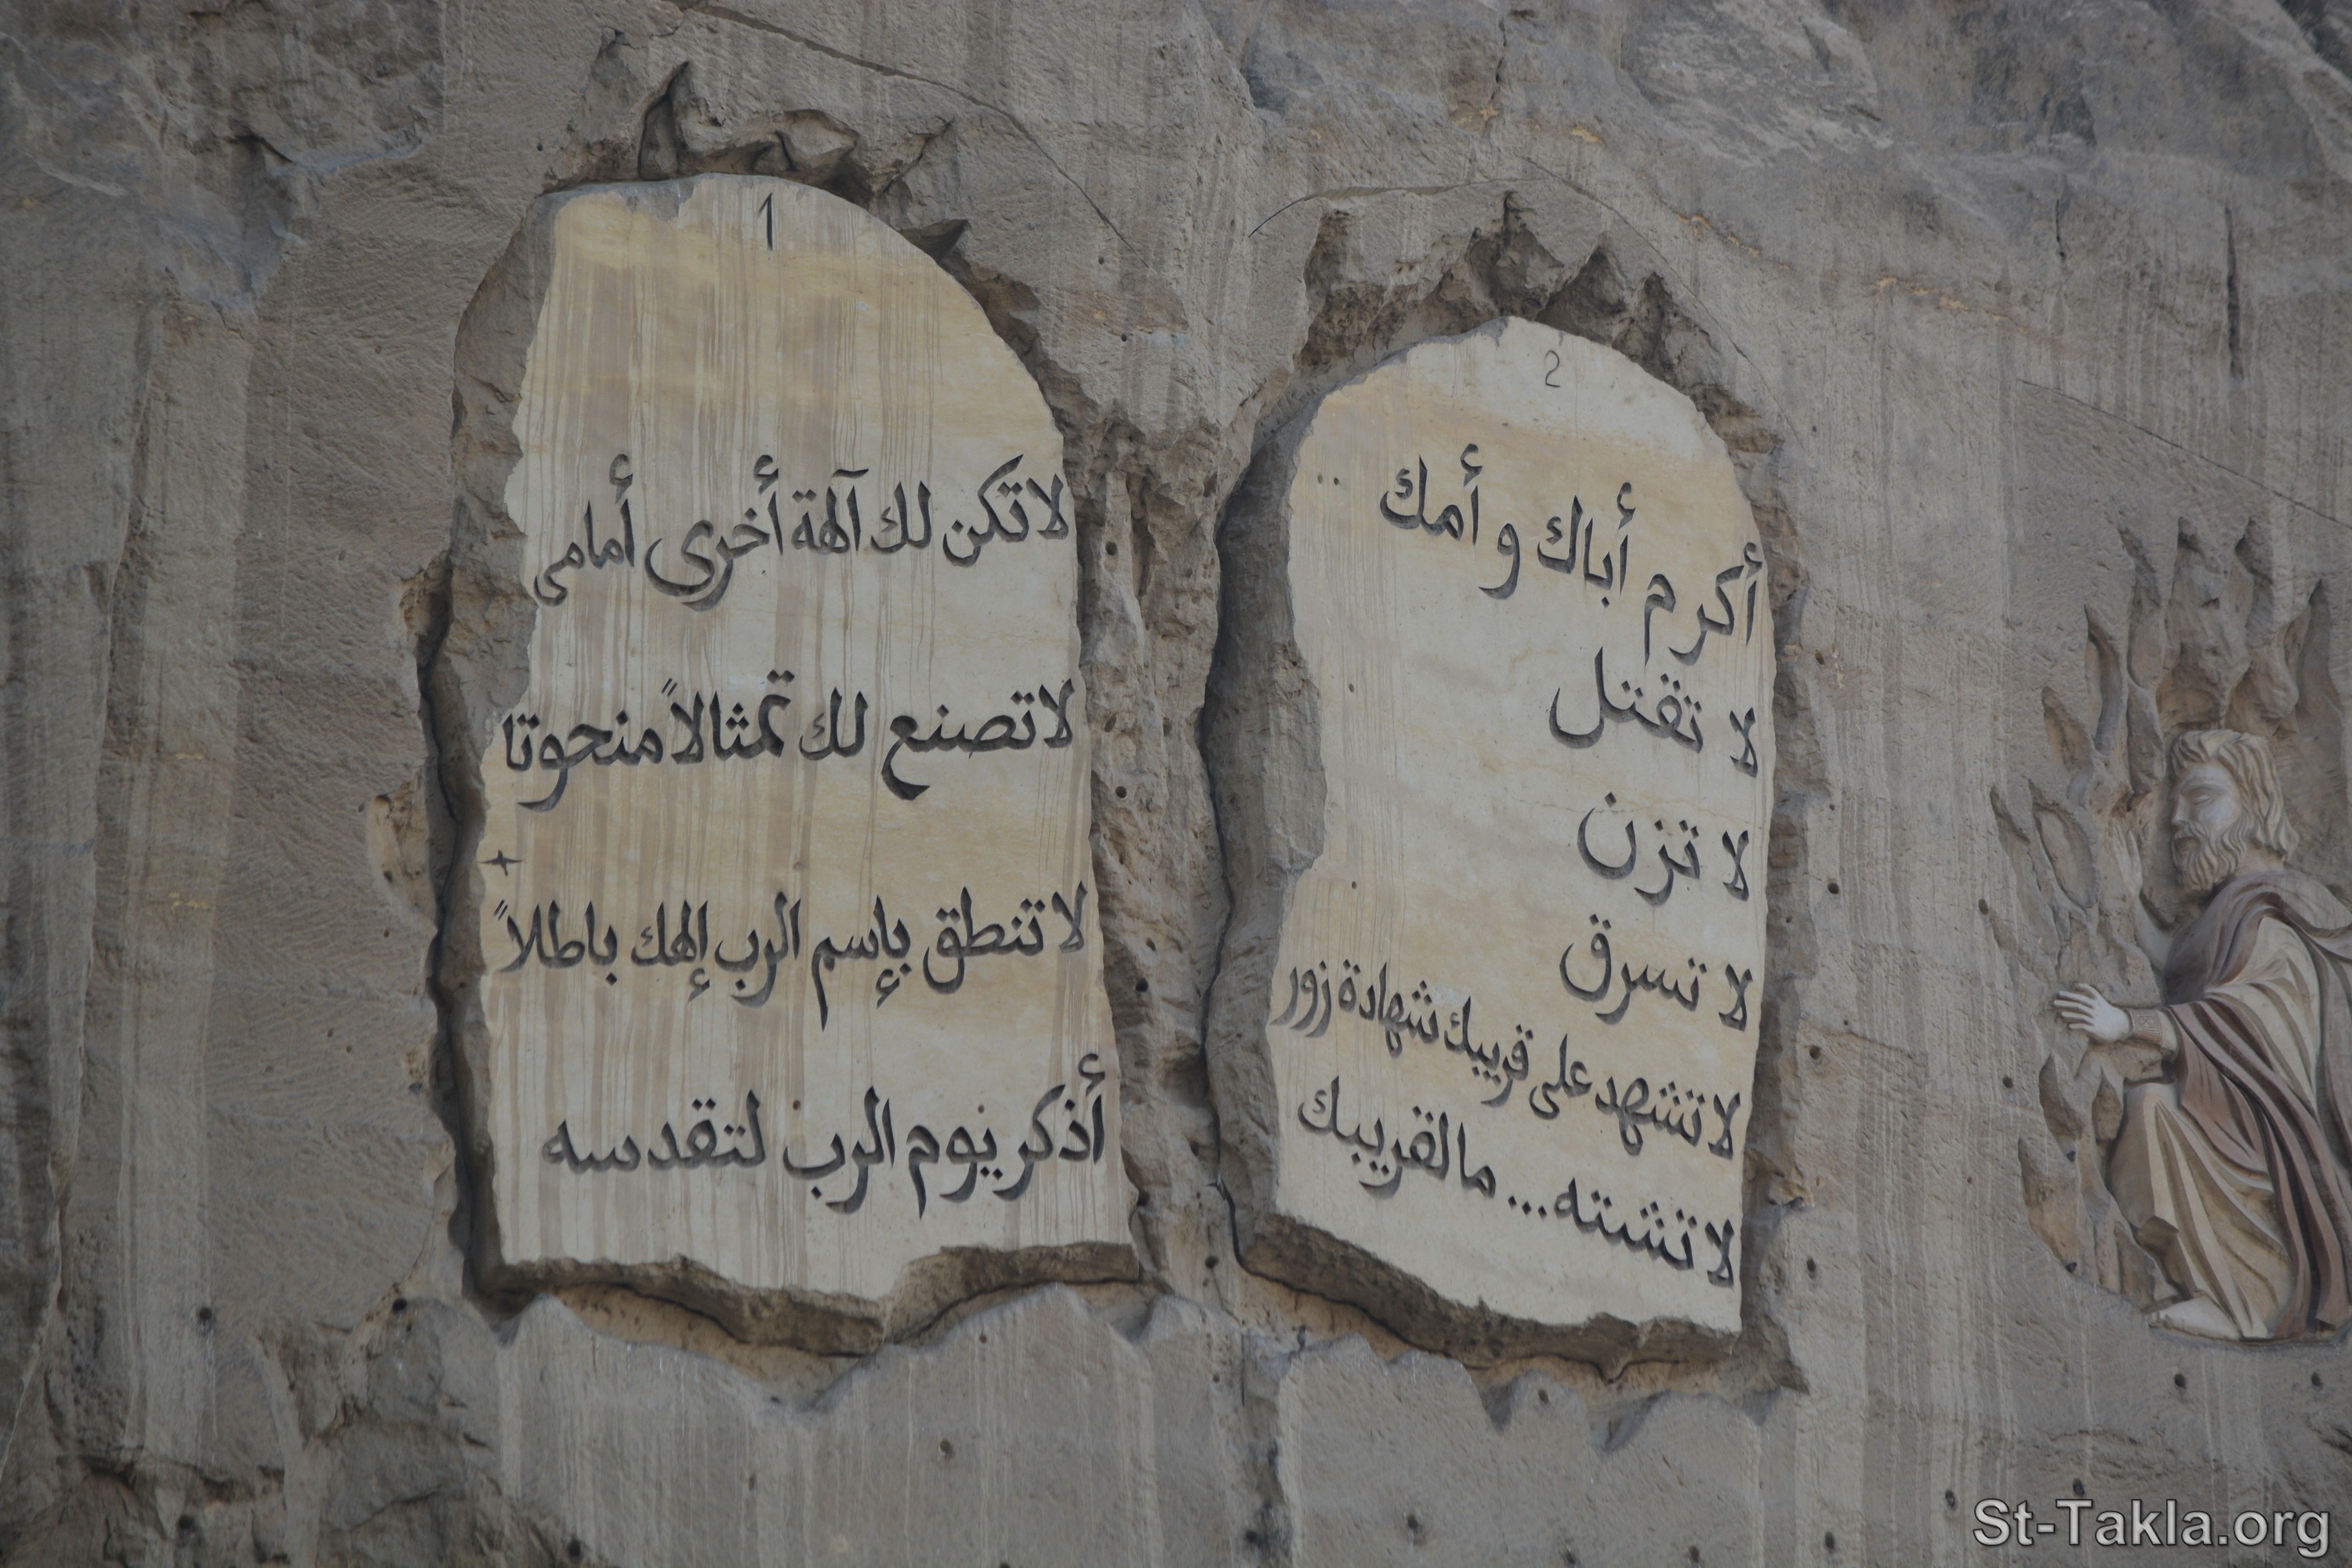 1
لا تكن لك آلهة أخرى أمامى
لا تصنع لك تمثالاً منحوتا
لا تنطق بإسم الرب إلهك باطلاً
أذكر يوم الرب لتقدسه
2
أكرم أباك و أمك ..
لا تقتل
لا تزن
لا تسرق
لا تشهد على قريبك شهادة زور
لا تشته... مالقريبك
St-Takla.org